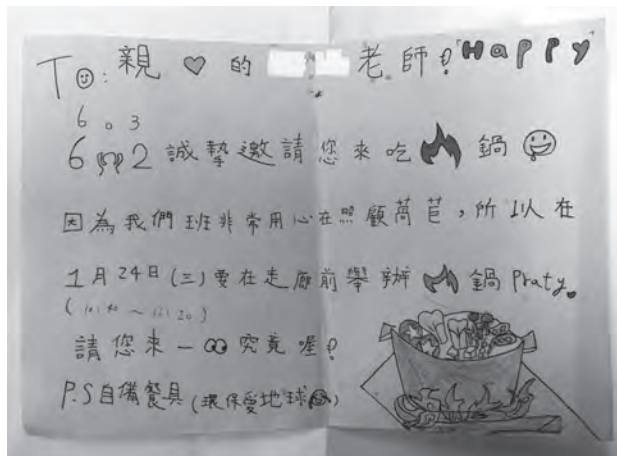 To: 親 的 老師! "Happy"
6.3
6 2 誠摯邀請您來吃 鍋
因為我們班非常用心在照顧萵苣,所以在
1月24日(三)要在走廊前舉辦 鍋 Praty.
請您來一 究竟喔!
P.S自備餐具(環保愛地球)